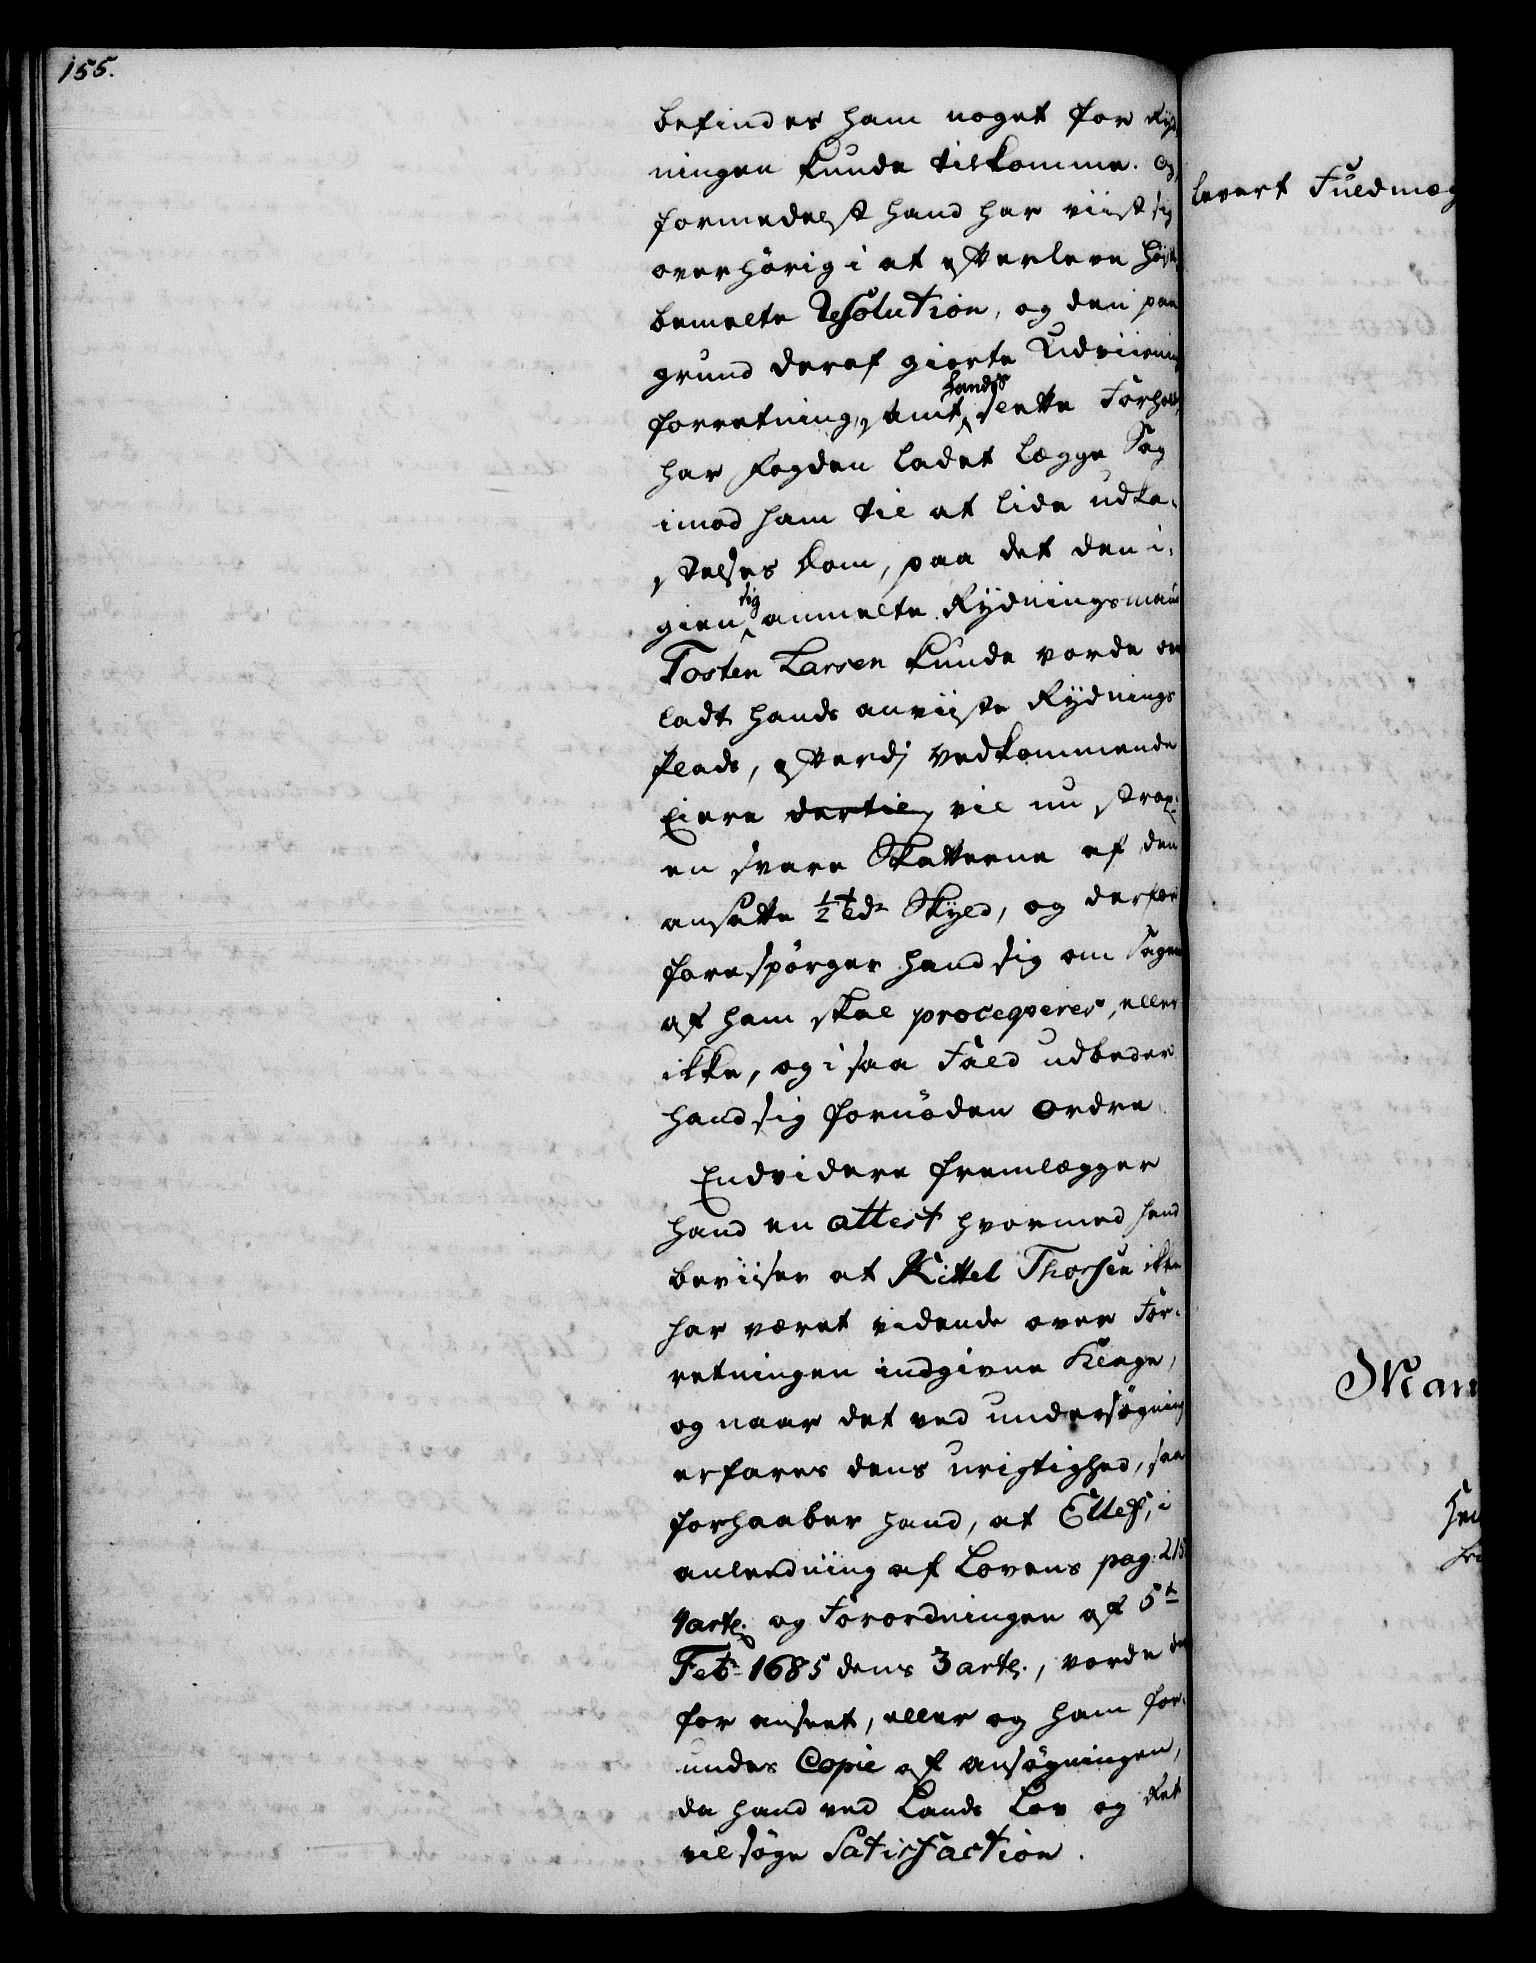 155.
befindes ham noget for Ryd
ningen kunde tilkomme. Og
formedelst hand har viist sig
overhørig i at efterleve høist
bemelte Resolution, og den paa
grund deraf giorte Udviisnings
forretning, samt hands slette Forhold,
har Fogden ladet lægge Sag
imod ham til at lide udka¬
stelses Dom, paa det den i¬
gien sig anmelte Rydningsmand
Tosten Larsen kunde vorde over
ladt hands anviiste Rydnings
Plads, efterdj vedkommende
Eiere dertil vil nu strax
en svare Skatterne af den
ansatte ½ td Skyld, og derfor
forespørger hand sig om Sagen
af ham skal proceqveres, eller
ikke, og i saa Fald udbeder
hand sig fornøden Ordre.
Endvidere fremlegger
hand en attest hvormed hand
beviiser at Kittel Thorsen ikke
har været vidende over For¬
retningen indgivne Klage,
og naar det ved undersøgning
erfares dens urigtighed, saa
forhaaber hand, at Ellef, i
anledning af Lovens pag: 215
1 artl. og Forordningen af 5t
Feb: 1685 dens 3 artl., vorde der
for anseet, eller og ham for¬
undes Copie af ansøgningen,
da hand ved Lands Lov og Ret
vil søge Satisfaction.
levert Fuldmæg
Man